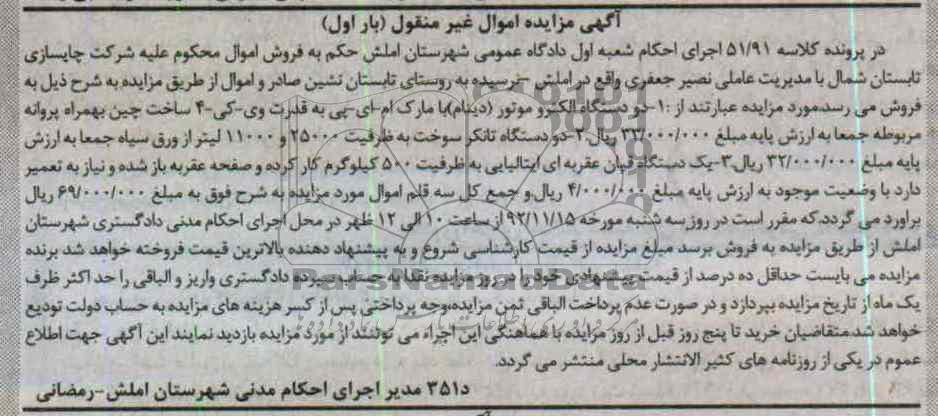 آگهی مزایده اموال غیر منقول (بار اول)
در پرونده کلاسه ۵۱/۹۱ اجرای احکام شعبه اول دادگاه عمومی شهرستان املش حکم به فروش اموال محکوم علیه شرکت چایسازی
تابستان شمال با مدیریت عاملی نصیر جعفری واقع در املش -نرسیده به روستای تابستان نشین صادر و اموال از طریق مزایده به شرح ذیل به
فروش می رسد.مورد مزایده عبارتند از :۱-دو دستگاه الکترو موتور (دینام)با مارک ام-ای-پی به قدرت وی-کی-۴ ساخت چین بهمراه پروانه
مربوطه جمعا به ارزش پایه مبلغ ۳۳/۰۰۰/۰۰۰ ریال.۲-دو دستگاه تانکر سوخت به ظرفیت ۲۵۰۰۰ و ۱۱۰۰۰ لیتر از ورق سیاه جمعا به ارزش
پایه مبلغ ۳۲/۰۰۰/۰۰۰ ریال.۳-یک دستگاه قپان عقربه ای ایتالیایی به ظرفیت ۵۰۰ کیلوگرم کار کرده و صفحه عقربه باز شده و نیاز به تعمیر
دارد با وضعیت موجود به ارزش پایه مبلغ ۴/۰۰۰/۰۰۰ ریال.و جمع کل سه قلم اموال مورد مزایده به شرح فوق به مبلغ ۶۹/۰۰۰/۰۰۰ ریال
براورد می گردد.که مقرر است در روز سه شنبه مورخه ۹۲/۱۱/۱۵ از ساعت ۱۰ الی ۱۲ ظهر در محل اجرای احکام مدنی دادگستری شهرستان
املش از طریق مزایده به فروش برسد مبلغ مزایده از قیمت کارشناسی شروع و به پیشنهاد دهنده بالاترین قیمت فروخته خواهد شد برنده
مزایده می بایست حداقل ده درصد از قیمت پیشنهادی خود را در روز مزایده نقدا به حساب سپرده دادگستری واریز و الباقی را حد اکثر ظرف
یک ماه از تاریخ مزایده بپردازد و در صورت عدم پرداخت الباقی ثمن مزایده،وجه پرداختی پس از کسر هزینه های مزایده به حساب دولت تودیع
خواهد شد.متقاضیان خرید تا پنج روز قبل از روز مزایده با هماهنگی این اجراء می توانند از مورد مزایده بازدید نمایند این آگهی جهت اطلاع
عموم در یکی از روزنامه های کثیر الانتشار محلی منتشر می گردد.
د۳۵۱ مدیر اجرای احکام مدنی شهرستان املش-رمضانی
ParsNamadData